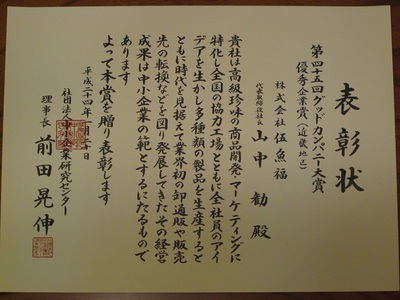 表彰状
第四十五回グッドカンパニー大賞
優秀企業賞(近畿地区)
株式会社 伍魚福
代表取締役社長 山中 勧 殿
貴社は高級珍味の商品開発・マーケティングに
特化し全国の協力工場とともに全社員のアイ
デアを生かし多種類の製品を生産すると
ともに時代を見据えて業界初の卸通販や販売
先の転換などを図り発展してきたその経営
成果は中小企業の範とするにたるもので
あります
よって本賞を贈り表彰します
平成二十四年一月二十日
社団法人中小企業研究センター
理事長 前田晃伸